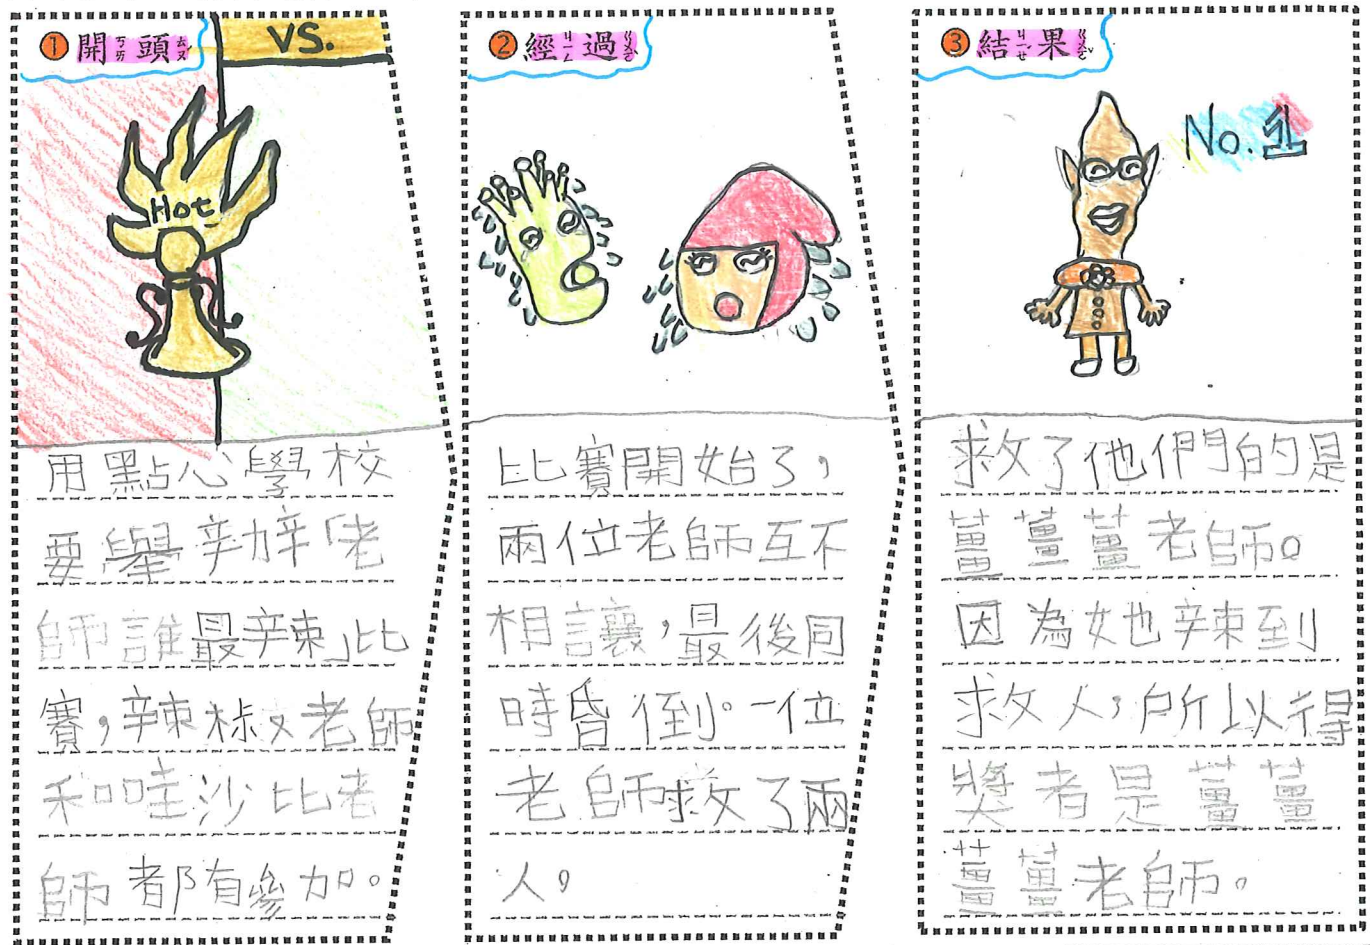 ①開頭
ㄎㄞ ㄊㄡˊ
VS.
Hot
用點心學校
要舉辛加辛「老
師誰最辣」比
賽,辣椒老師
和哇沙比老
師都有參加。
②經過
ㄐㄧㄥ ㄍㄨㄛˋ
比賽開始了,
兩位老師互不
相讓,最後同
時昏倒。一位
老師救了兩
人。
③結果
ㄐㄧㄝˊ ㄍㄨㄛˇ
No.1
救了他們的是
薑薑薑老師。
因為她辣到
救人,所以得
獎者是薑薑
薑薑老師。